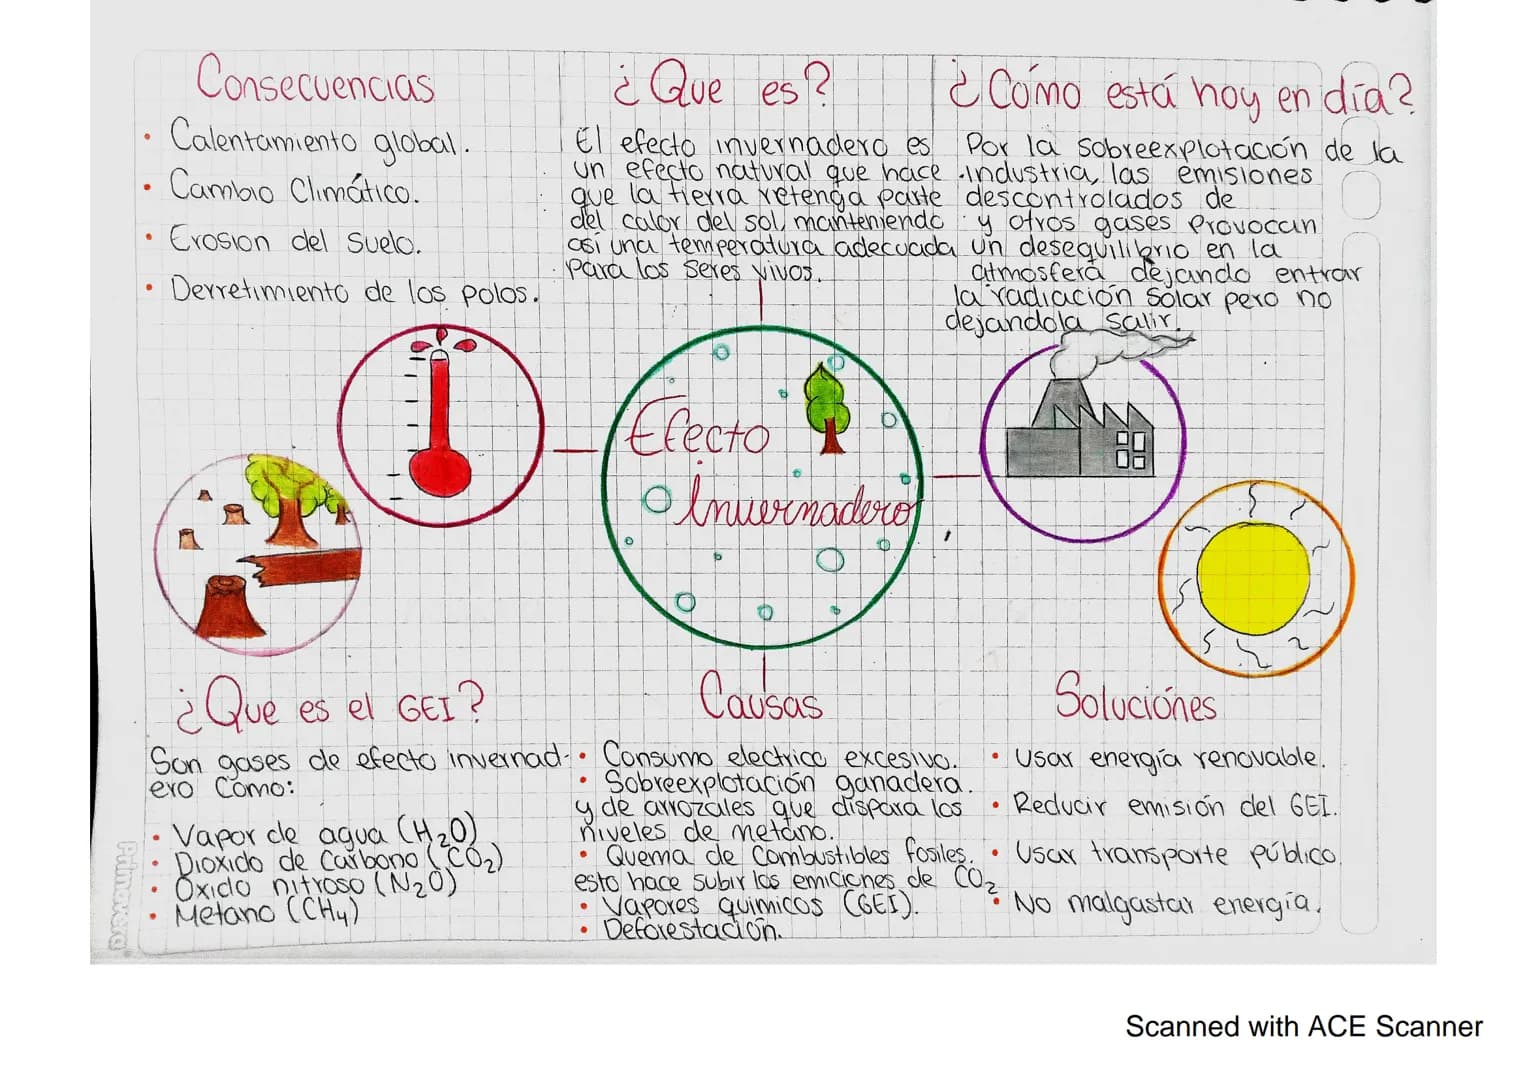 Consecuencias
• Calentamiento global.
• Cambio Climático.
• Erosion del suelo.
• Derretimiento de los polos.
¿Que es?
El efecto invernadero es
un efecto natural que hace
que la tierra retenga parte
del calor del sol, manteniendo
asi una temperatura adecuada
para los seres vivos.
¿Cómo está hoy en día?
Por la sobreexplotación de la
industria, las emisiones
descontrolados de
y otros gases provocan
un desequilibrio en la
atmosfera dejando entrar
la radiación solar pero no
dejandola salir.
Efecto
Invernadero
¿Que es el GEI?
Son gases de efecto invernad-
ero Como:
• Vapor de agua (H₂O)
• Dioxido de Carbono (CO₂)
• Óxido nitroso (N₂O)
• Metano (CH₄)
Causas
• Consumo electrico excesivo.
• Sobreexplotación ganadera.
y de arrozales que dispara los
niveles de metano.
• Quema de Combustibles fosiles.
esto hace subir las emiciones de CO₂
• Vapores quimicos (GEI).
• Deforestación.
Soluciónes
• Usar energía renovable.
• Reducir emisión del GEI.
• Usar transporte público.
• No malgastar energía.
Primavera
Scanned with ACE Scanner